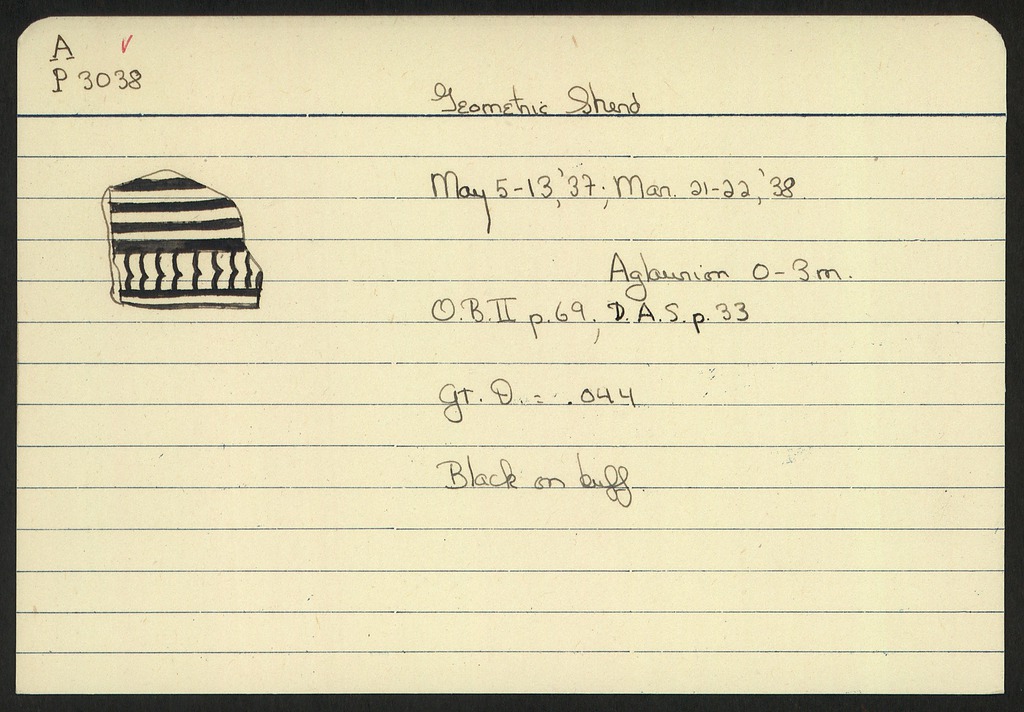 A
P 3038
Geometric Sherd
May 5-13,'37; Mar. 21-22,'38
Aglaurion 0-3m.
O.B.II p.69, D.A.S. p. 33
Gt. D. = .044
Black on buff